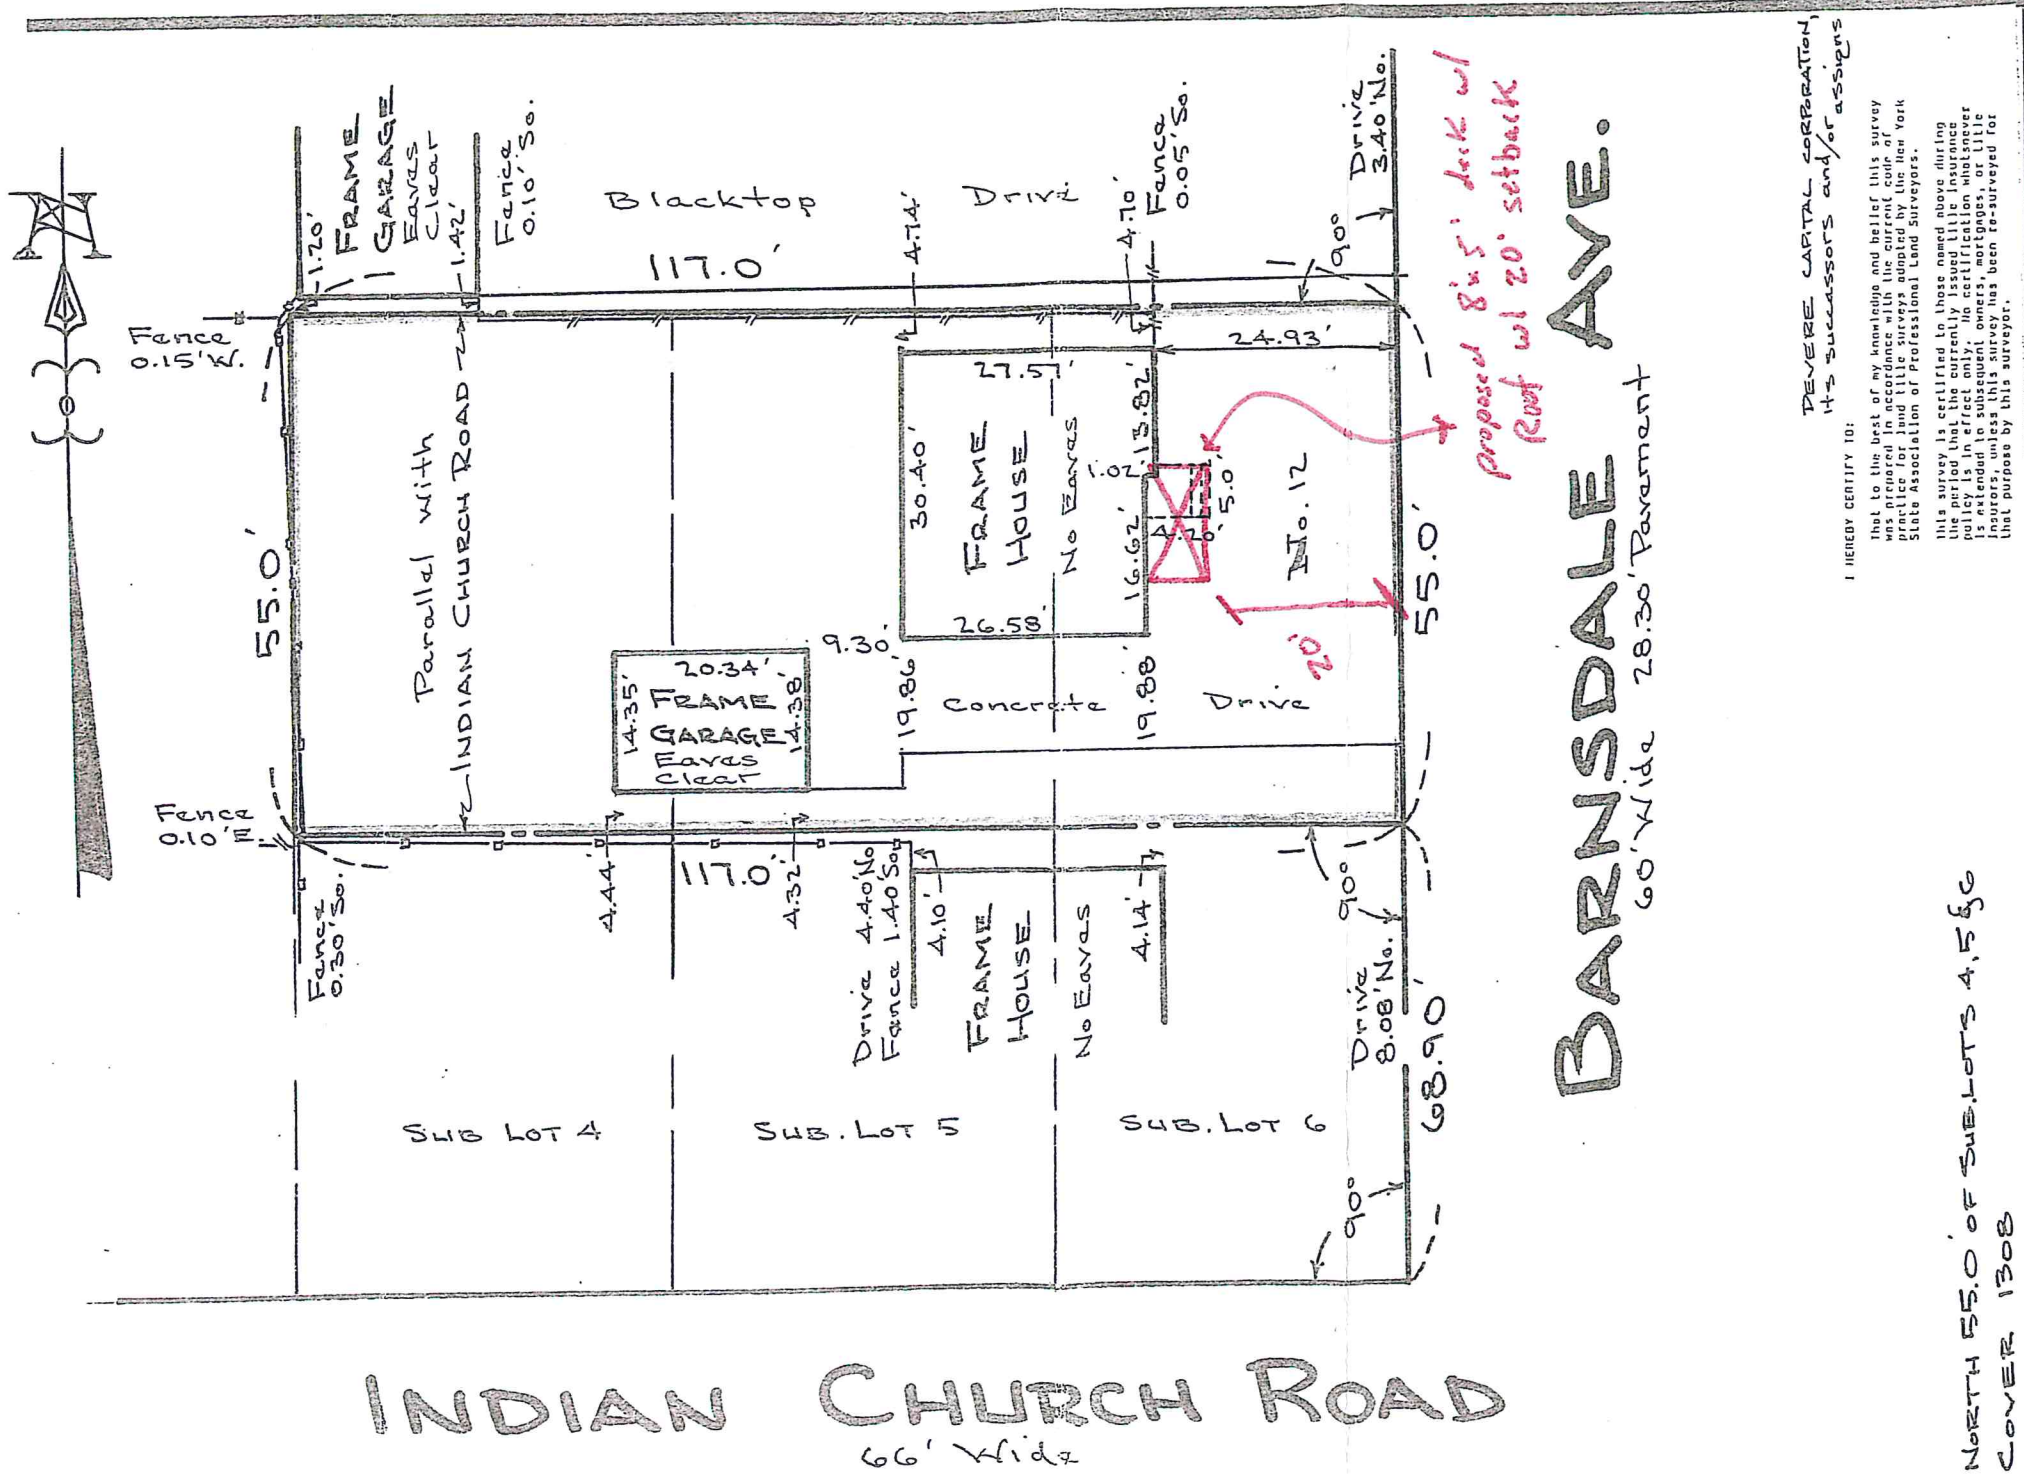 N
1.20'
FRAME
GARAGE
Eaves
Clear
1.42'
Fence
0.10' So.
Blacktop Drive
117.0'
4.74'
4.70'
Fence
0.05' So.
Drive
3.40' No.
90°
proposed 8'x5' deck w/
Roof w/ 20' setback
Fence
0.15' W.
Parallel with
INDIAN CHURCH ROAD
55.0'
27.57'
24.93'
30.40'
FRAME
HOUSE
No Eaves
13.82'
1.02'
16.62'
5.0'
4.20'
No. 12
26.58'
20'
55.0'
BARNSDALE AVE.
60' Wide 28.30' Pavement
9.30'
20.34'
14.35'
14.38'
FRAME
GARAGE
Eaves
Clear
19.86'
Concrete Drive
19.88'
Fence
0.10' E.
Fence
0.30' So.
4.44'
117.0'
4.32'
Drive 4.40' No.
Fence 1.40' So.
4.10'
FRAME
HOUSE
No Eaves
4.14'
90°
Drive
8.08' No.
68.90'
90°
SUB LOT 4
SUB. LOT 5
SUB. LOT 6
INDIAN CHURCH ROAD
66' Wide
DEVERE CAPITAL CORPORATION,
its successors and/or assigns
I HEREBY CERTIFY TO:
That to the best of my knowledge and belief this survey
was prepared in accordance with the current code of
practice for land title surveys adopted by the New York
State Association of Professional Land Surveyors.
This survey is certified to those named above during
the period that the currently issued title insurance
policy is in effect only. No certification whatsoever
is extended to subsequent owners, mortgages, or title
insurors, unless this survey has been re-surveyed for
that purpose by this surveyor.
NORTH 55.0' OF SUBLOTS 4, 5 & 6
COVER 1308